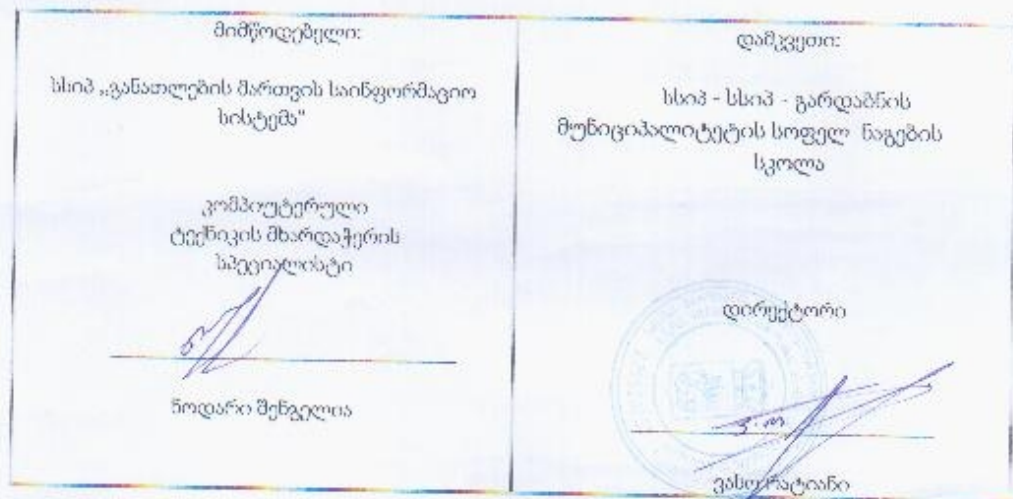 მიმწოდებელი:
სსიპ „განათლების მართვის საინფორმაციო
სისტემა"
კომპიუტერული
ტექნიკის მხარდაჭერის
სპეციალისტი
ნოდარი შენგელია
დამკვეთი:
სსიპ - სსიპ - გარდაბნის
მუნიციპალიტეტის სოფელ ნაგების
სკოლა
დირექტორი
ვასო რატიანი